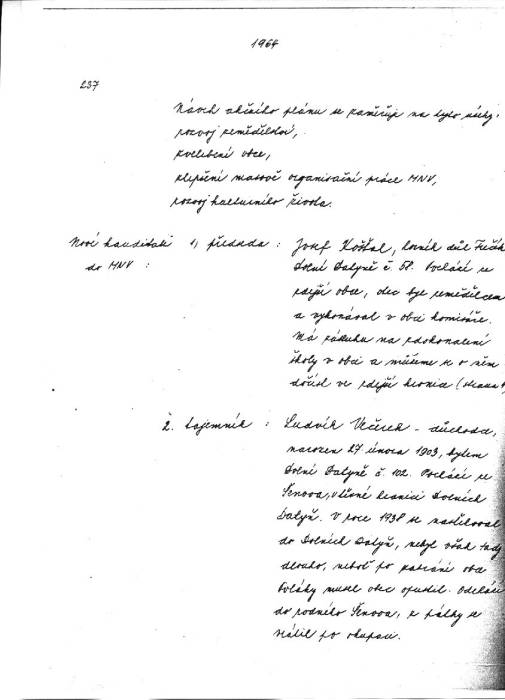 1964
237
Návrh akčního plánu se zaměřuje na tyto úkoly:
rozvoj zemědělství,
zvelebení obce,
zlepšení masově organisační práce MNV,
rozvoj kulturního života.
Noví kandidáti 1, předseda : Josef Košťál, horník důl
do MNV : Dolní Datyně č. 58. Pochází ze
zdejší obce, otec byl zemědělcem
a vykonával v obci komisaře.
Má zásluhu na zdokonalení
školy v obci a můžeme se o něm
dočísti ve zdejší kronice (strana
2. tajemník : Ludvík Věcrek – důchodce,
narozen 27. února 1903, bytem
Dolní Datyně č. 102. Pochází ze
Šenova, v těsné hranici Dolních
Datyň. V roce 1938 se nastěhoval
do Dolních Datyň, nebyl však tady
dlouho, neboť po zabrání obce
Poláky musel obec opustit. Odešel
do rodného Šenova, z pátky se
vrátil po okupaci.